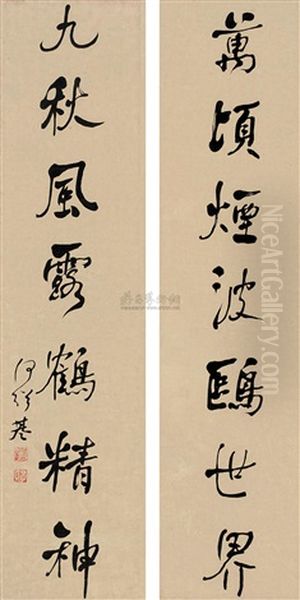 萬頃煙波鷗世界
九秋風露鶴精神
何紹基
NiceArtGallery.com